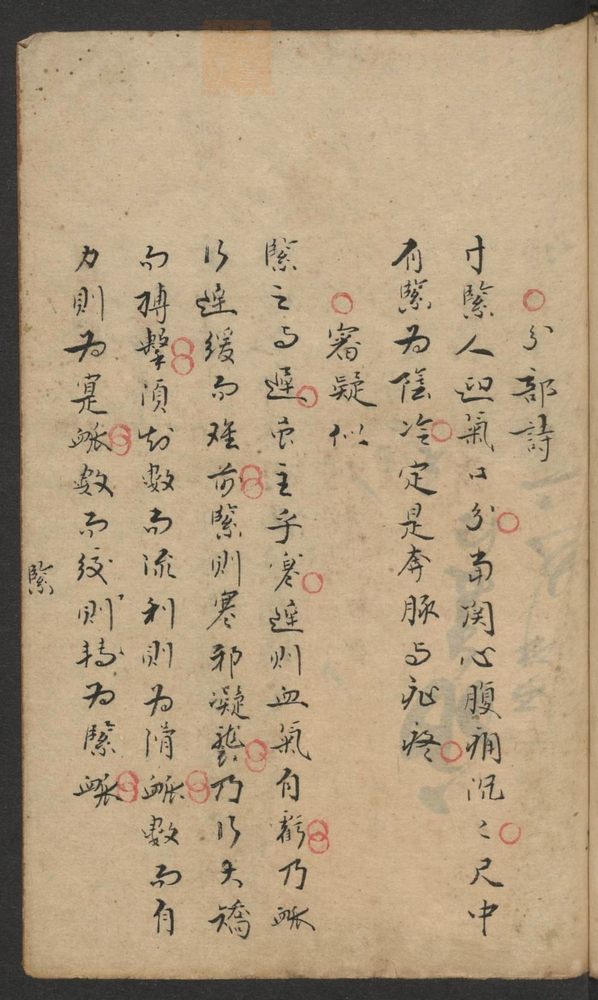 ○分部詩
寸緊人迎氣口分當関心腹痛沉〻尺中
有緊為陰冷定是奔豚与疝疼
○審疑似
緊之与遲虽主乎寒遲則血氣有虧乃脉
行遲緩而难前緊則寒邪凝襲乃行夭矯
而搏擊須知數而流利則為滑脉數而有
力則為寔脉數而絞則轉為緊脉
緊